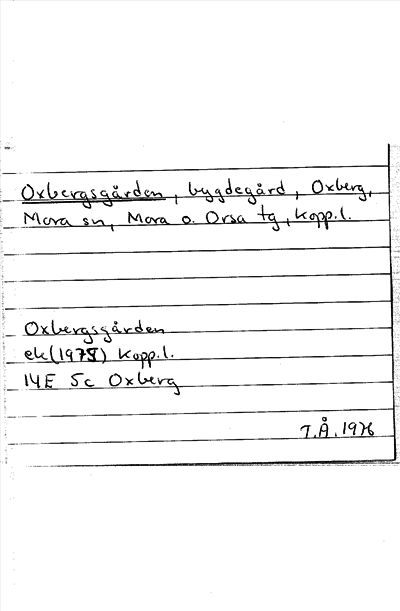 Oxbergsgården, bygdegård, Oxberg,
Mora sn, Mora o. Orsa tg, Kopp.l.
Oxbergsgården
ek(1975) Kopp.l.
14E 5c Oxberg
T.Å. 1976